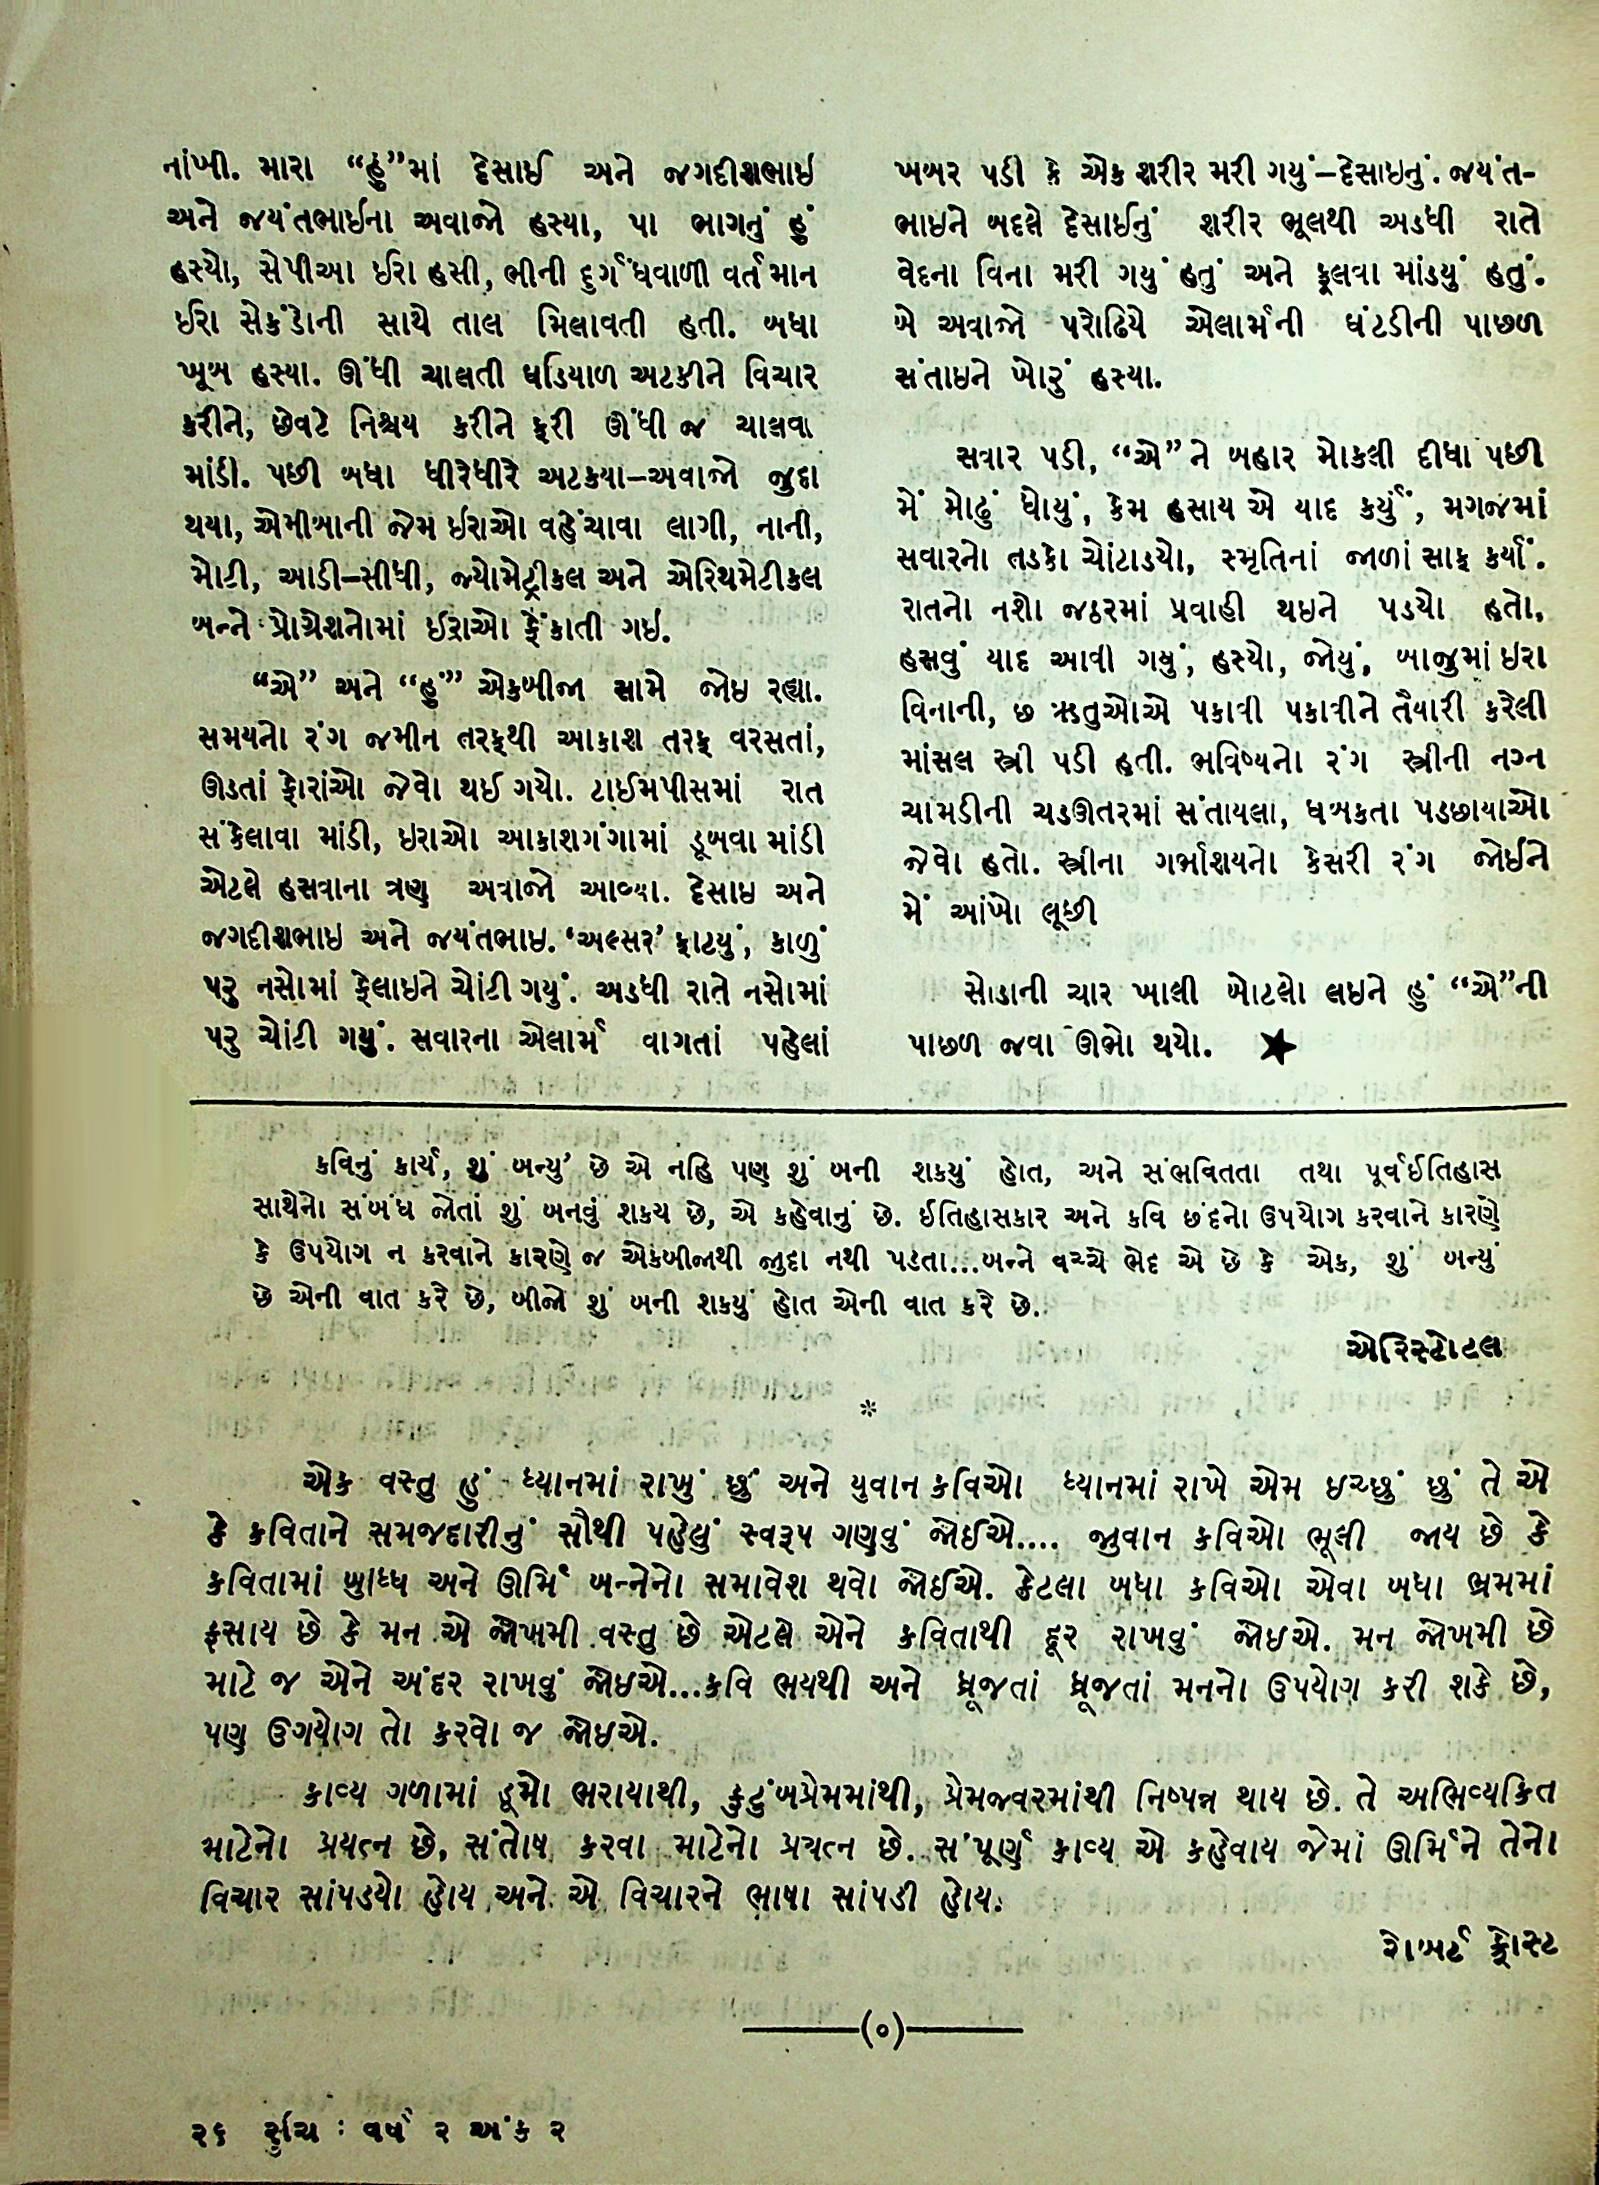 નાંખી. મારા “હું”માં દેસાઈ અને જગદીશભાઇ
અને જયંતભાઇના અવાજો હસ્યા, પા ભાગનું હું
હસ્યો, સેપીઆ ઈરા હસી, ભીની દુર્ગંધવાળી વર્તમાન
ઈરા સેકંડોની સાથે તાલ મિલાવતી હતી. બધા
ખૂબ હસ્યા. ઊંધી ચાલતી ઘડિયાળ અટકીને વિચાર
કરીને, છેવટે નિશ્ચય કરીને ફરી ઊંધી જ ચાલવા
માંડી. પછી બધા ધીરેધીરે અટક્યા–અવાજો જુદા
થયા, એમીબાની જેમ ઈરાઓ વહેંચાવા લાગી, નાની,
મોટી, આડી–સીધી, જ્યોમેટ્રીકલ અને એરિથમેટીકલ
બન્ને પ્રોગ્રેશનોમાં ઈરાઓ ફેંકાતી ગઇ.
“એ” અને “હું” એકબીજા સામે જોઇ રહ્યા.
સમયનો રંગ જમીન તરફથી આકાશ તરફ વરસતાં,
ઊડતાં ફોરાંઓ જેવો થઈ ગયો. ટાઈમપીસમાં રાત
સંકેલાવા માંડી, ઇરાઓ આકાશગંગામાં ડૂબવા માંડી
એટલે હસવાના ત્રણ અવાજો આવ્યા. દેસાઇ અને
જગદીશભાઇ અને જયંતભાઇ. ‘અલ્સર’ ફાટયું, કાળું
પરુ નસોમાં ફેલાઇને ચોંટી ગયું. અડધી રાતે નસોમાં
પરુ ચોંટી ગયું. સવારના એલાર્મ વાગતાં પહેલાં
ખબર પડી કે એક શરીર મરી ગયું–દેસાઇનું. જયંત-
ભાઇને બદલે દેસાઈનું શરીર ભૂલથી અડધી રાતે
વેદના વિના મરી ગયું હતું અને ફૂલવા માંડયું હતું.
બે અવાજો પરોઢિયે એલાર્મની ઘંટડીની પાછળ
સંતાઇને ખોરું હસ્યા.
સવાર પડી, “એ” ને બહાર મોકલી દીધા પછી
મેં મોઢું ધોયું, કેમ હસાય એ યાદ કર્યું, મગજમાં
સવારનો તડકો ચોંટાડયો, સ્મૃતિનાં જાળાં સાફ કર્યાં.
રાતનો નશો જઠરમાં પ્રવાહી થઇને પડયો હતો,
હસવું યાદ આવી ગયું, હસ્યો, જોયું, બાજુમાં ઇરા
વિનાની, છ ઋતુઓએ પકાવી પકાવીને તૈયારી કરેલી
માંસલ સ્ત્રી પડી હતી. ભવિષ્યનો રંગ સ્ત્રીની નગ્ન
ચામડીની ચડઊતરમાં સંતાયલા, ધબકતા પડછાયાઓ
જેવો હતો. સ્ત્રીના ગર્ભાશયનો કેસરી રંગ જોઈને
મેં આંખો લૂછી
સોડાની ચાર ખાલી બોટલો લઇને હું “એ”ની
પાછળ જવા ઊભો થયો. ★
કવિનું કાર્ય, શું બન્યું’ છે એ નહિ પણ શું બની શક્યું હોત, અને સંભવિતતા તથા પૂર્વઈતિહાસ
સાથેનો સંબંધ જોતાં શું બનવું શક્ય છે, એ કહેવાનું છે. ઈતિહાસકાર અને કવિ છંદનો ઉપયોગ કરવાને કારણે
કે ઉપયોગ ન કરવાને કારણે જ એકબીજાથી જુદા નથી પડતા...બન્ને વચ્ચે ભેદ એ છે કે એક, શું બન્યું
છે એની વાત કરે છે, બીજો શું બની શકયું હોત એની વાત કરે છે.
એરિસ્ટોટલ
*
એક વસ્તુ હું ધ્યાનમાં રાખું છું અને યુવાન કવિઓ ધ્યાનમાં રાખે એમ ઇચ્છું છું તે એ
કે કવિતાને સમજદારીનું સૌથી પહેલું સ્વરૂપ ગણવું જોઈએ.... જુવાન કવિઓ ભૂલી જાય છે કે
કવિતામાં બુધ્ધિ અને ઊર્મિ બન્નેનો સમાવેશ થવો જોઈએ. કેટલા બધા કવિઓ એવા બધા ભ્રમમાં
ફસાય છે કે મન એ જોખમી વસ્તુ છે એટલે એને કવિતાથી દૂર રાખવું જોઇએ. મન જોખમી છે
માટે જ એને અંદર રાખવું જોઇએ...કવિ ભયથી અને ધ્રૂજતાં ધ્રૂજતાં મનનો ઉપયોગ કરી શકે છે,
પણ ઉગયોગ તો કરવો જ જોઇએ.
કાવ્ય ગળામાં ડૂમો ભરાયાથી, કુટુંબપ્રેમમાંથી, પ્રેમજ્વરમાંથી નિષ્પન્ન થાય છે. તે અભિવ્યક્તિ
માટેનો પ્રયત્ન છે, સંતોષ કરવા માટેનો પ્રયત્ન છે. સંપૂર્ણ કાવ્ય એ કહેવાય જેમાં ઊર્મિને તેનો
વિચાર સાંપડયો હોય અને એ વિચારને ભાષા સાંપડી હોય.
રોબર્ટ ફ્રોસ્ટ
—(૦)—
૨૬ રુચિ : વર્ષ ૨ અંક ૨